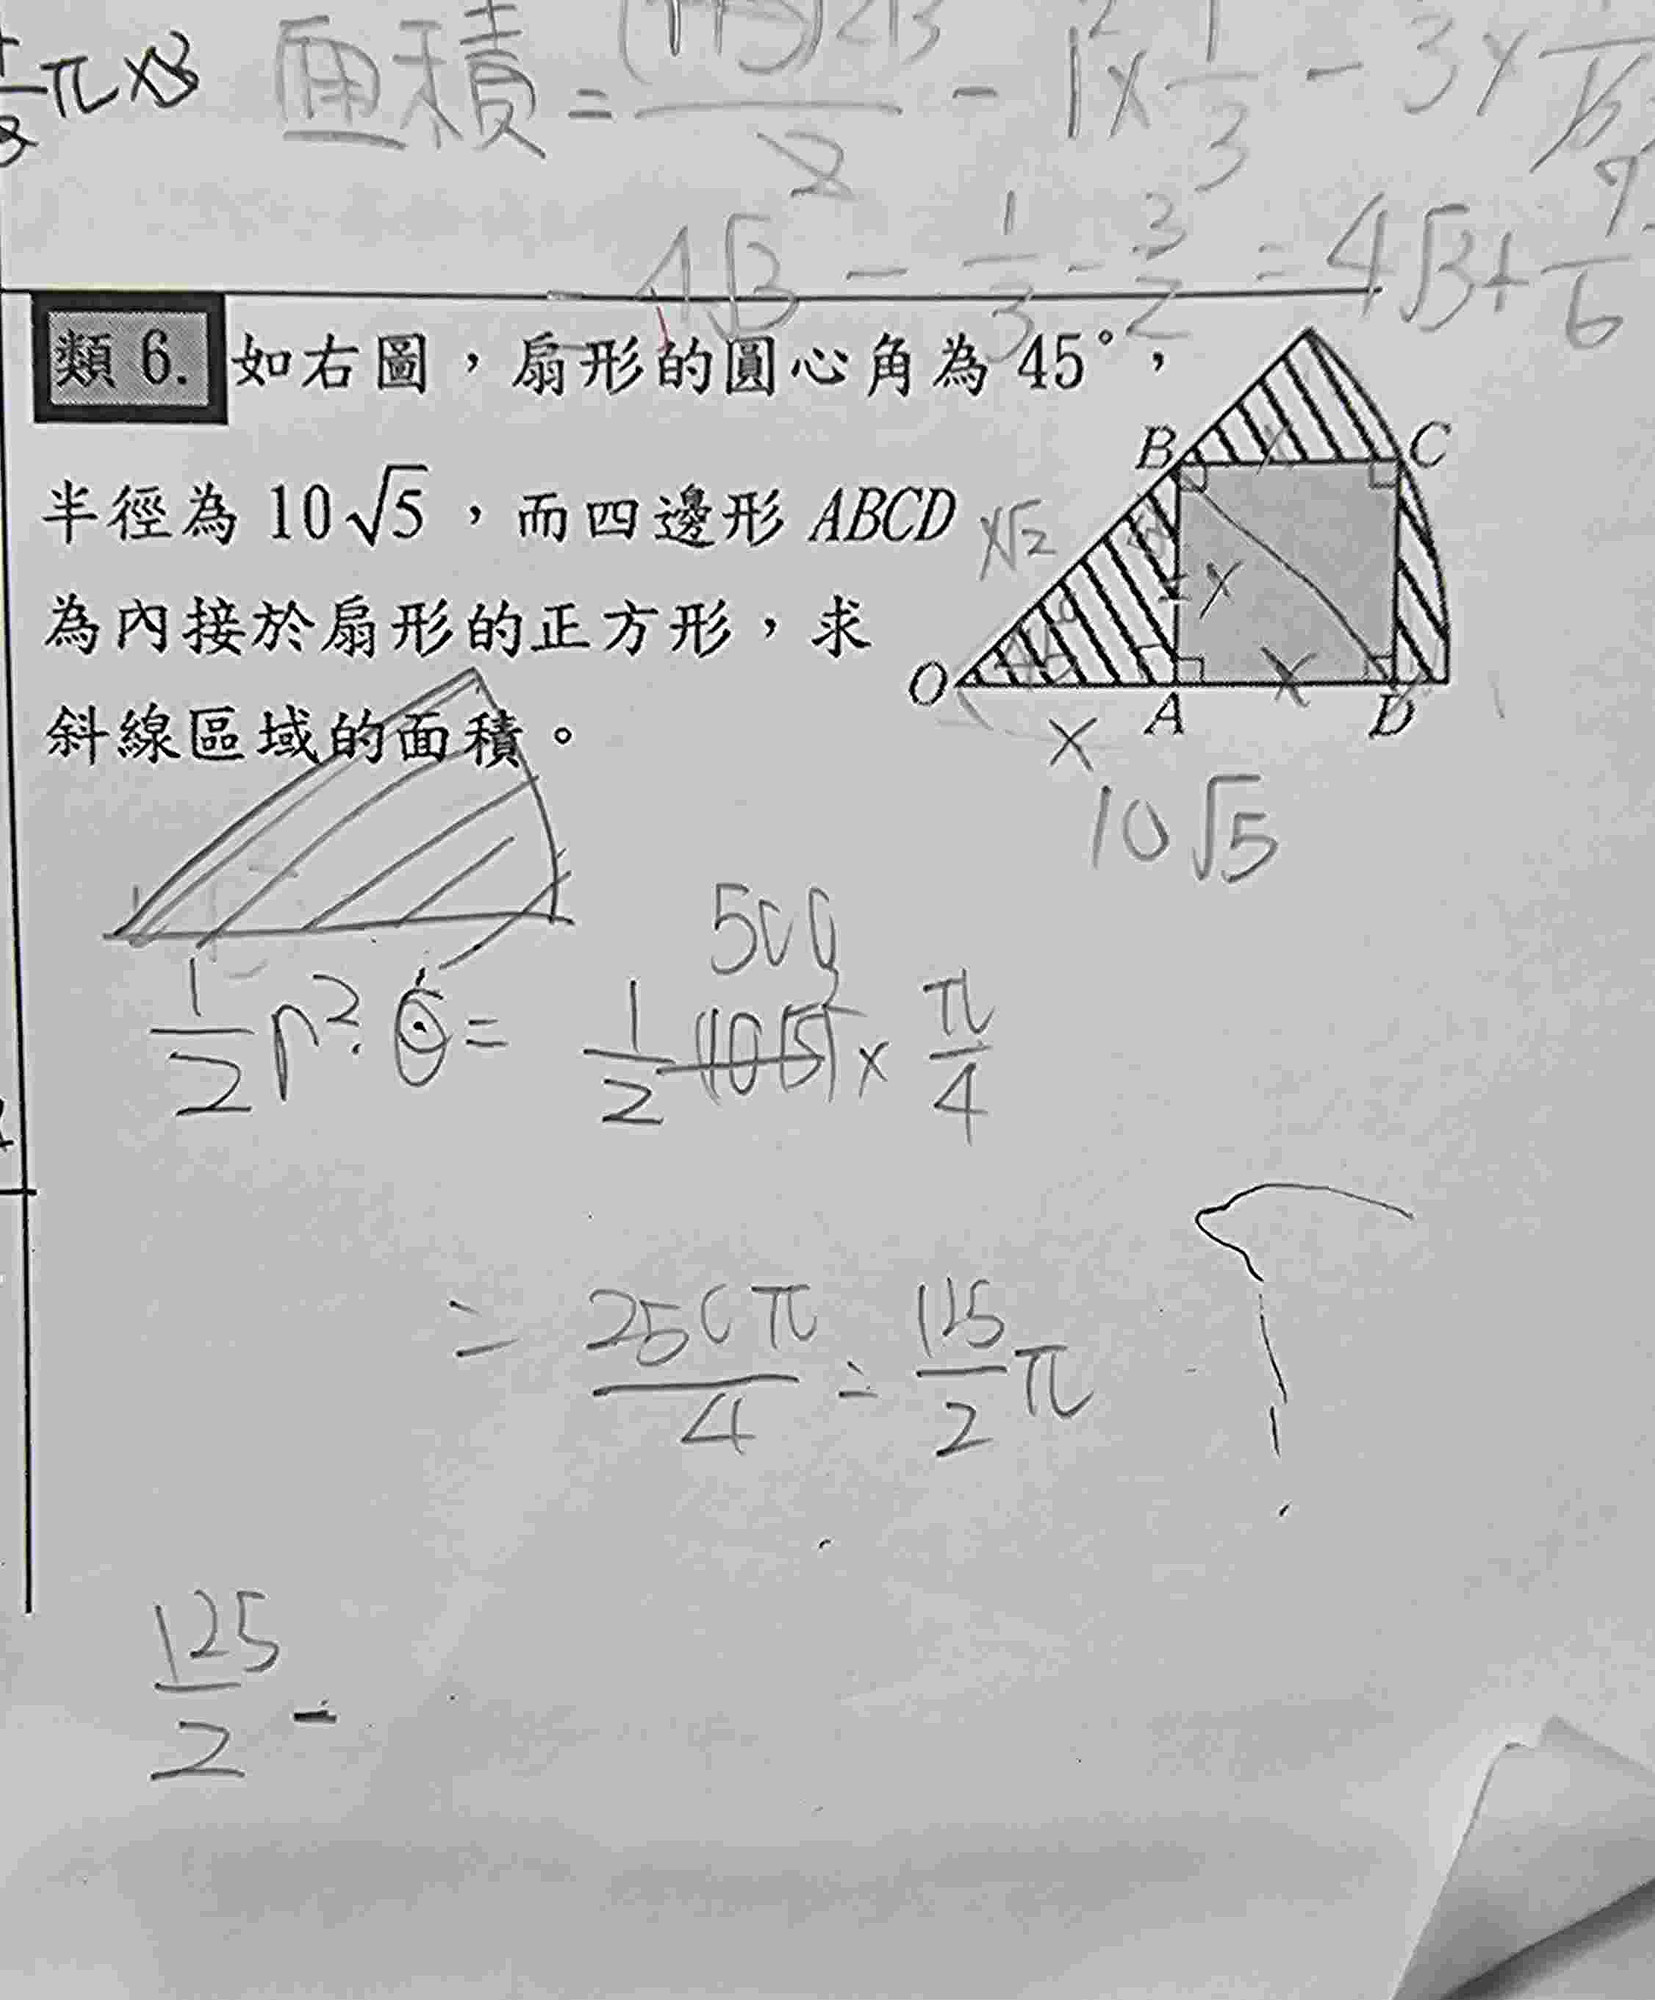 π×3
面積 = 2√3 / 2 - 1² × 1/3 - 3 ×
4√3 - 1/3 - 3/2 = 4√3 +
類 6. 如右圖，扇形的圓心角為 45°，
半徑為 10√5，而四邊形 ABCD
為內接於扇形的正方形，求
斜線區域的面積。
B
C
x√2
x
x
O
A
D
x
10√5
500
1/2 r² · θ = 1/2 (10√5) × π/4
= 250π/4 = 125/2 π
125/2 -